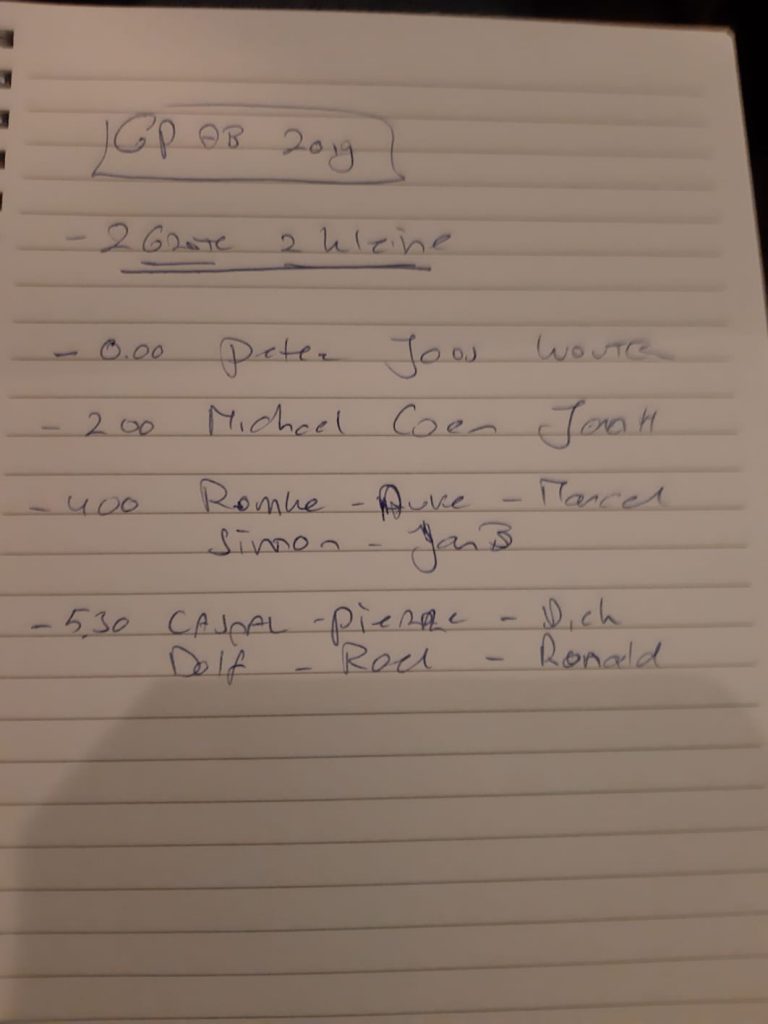 GP OB 2019
- 2 Grote 2 kleine
- 0.00 Peter Joos Wouter
- 200 Michael Coen Jan H
- 400 Romke - Auke - Marcel
Simon - Jan B
- 5.30 CASPAR - Pierre - Dick
Dolf - Roel - Ronald